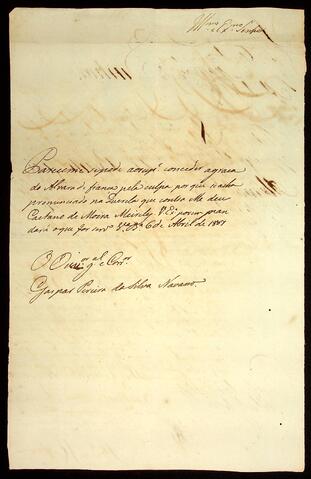 Illmo e Exmo Senhor
Pareceme se pode ao supe conceder a graça
do Alvara di fiança pela culpa por que se acha
pronunciado na Querela que contra elle deu
Caetano de Moira Meireles V.Exa porem man
dará o que for servo 6 de Abril de 1801
O Ouvor gal e Corror
Gaspar Pereira da Silva Navarro